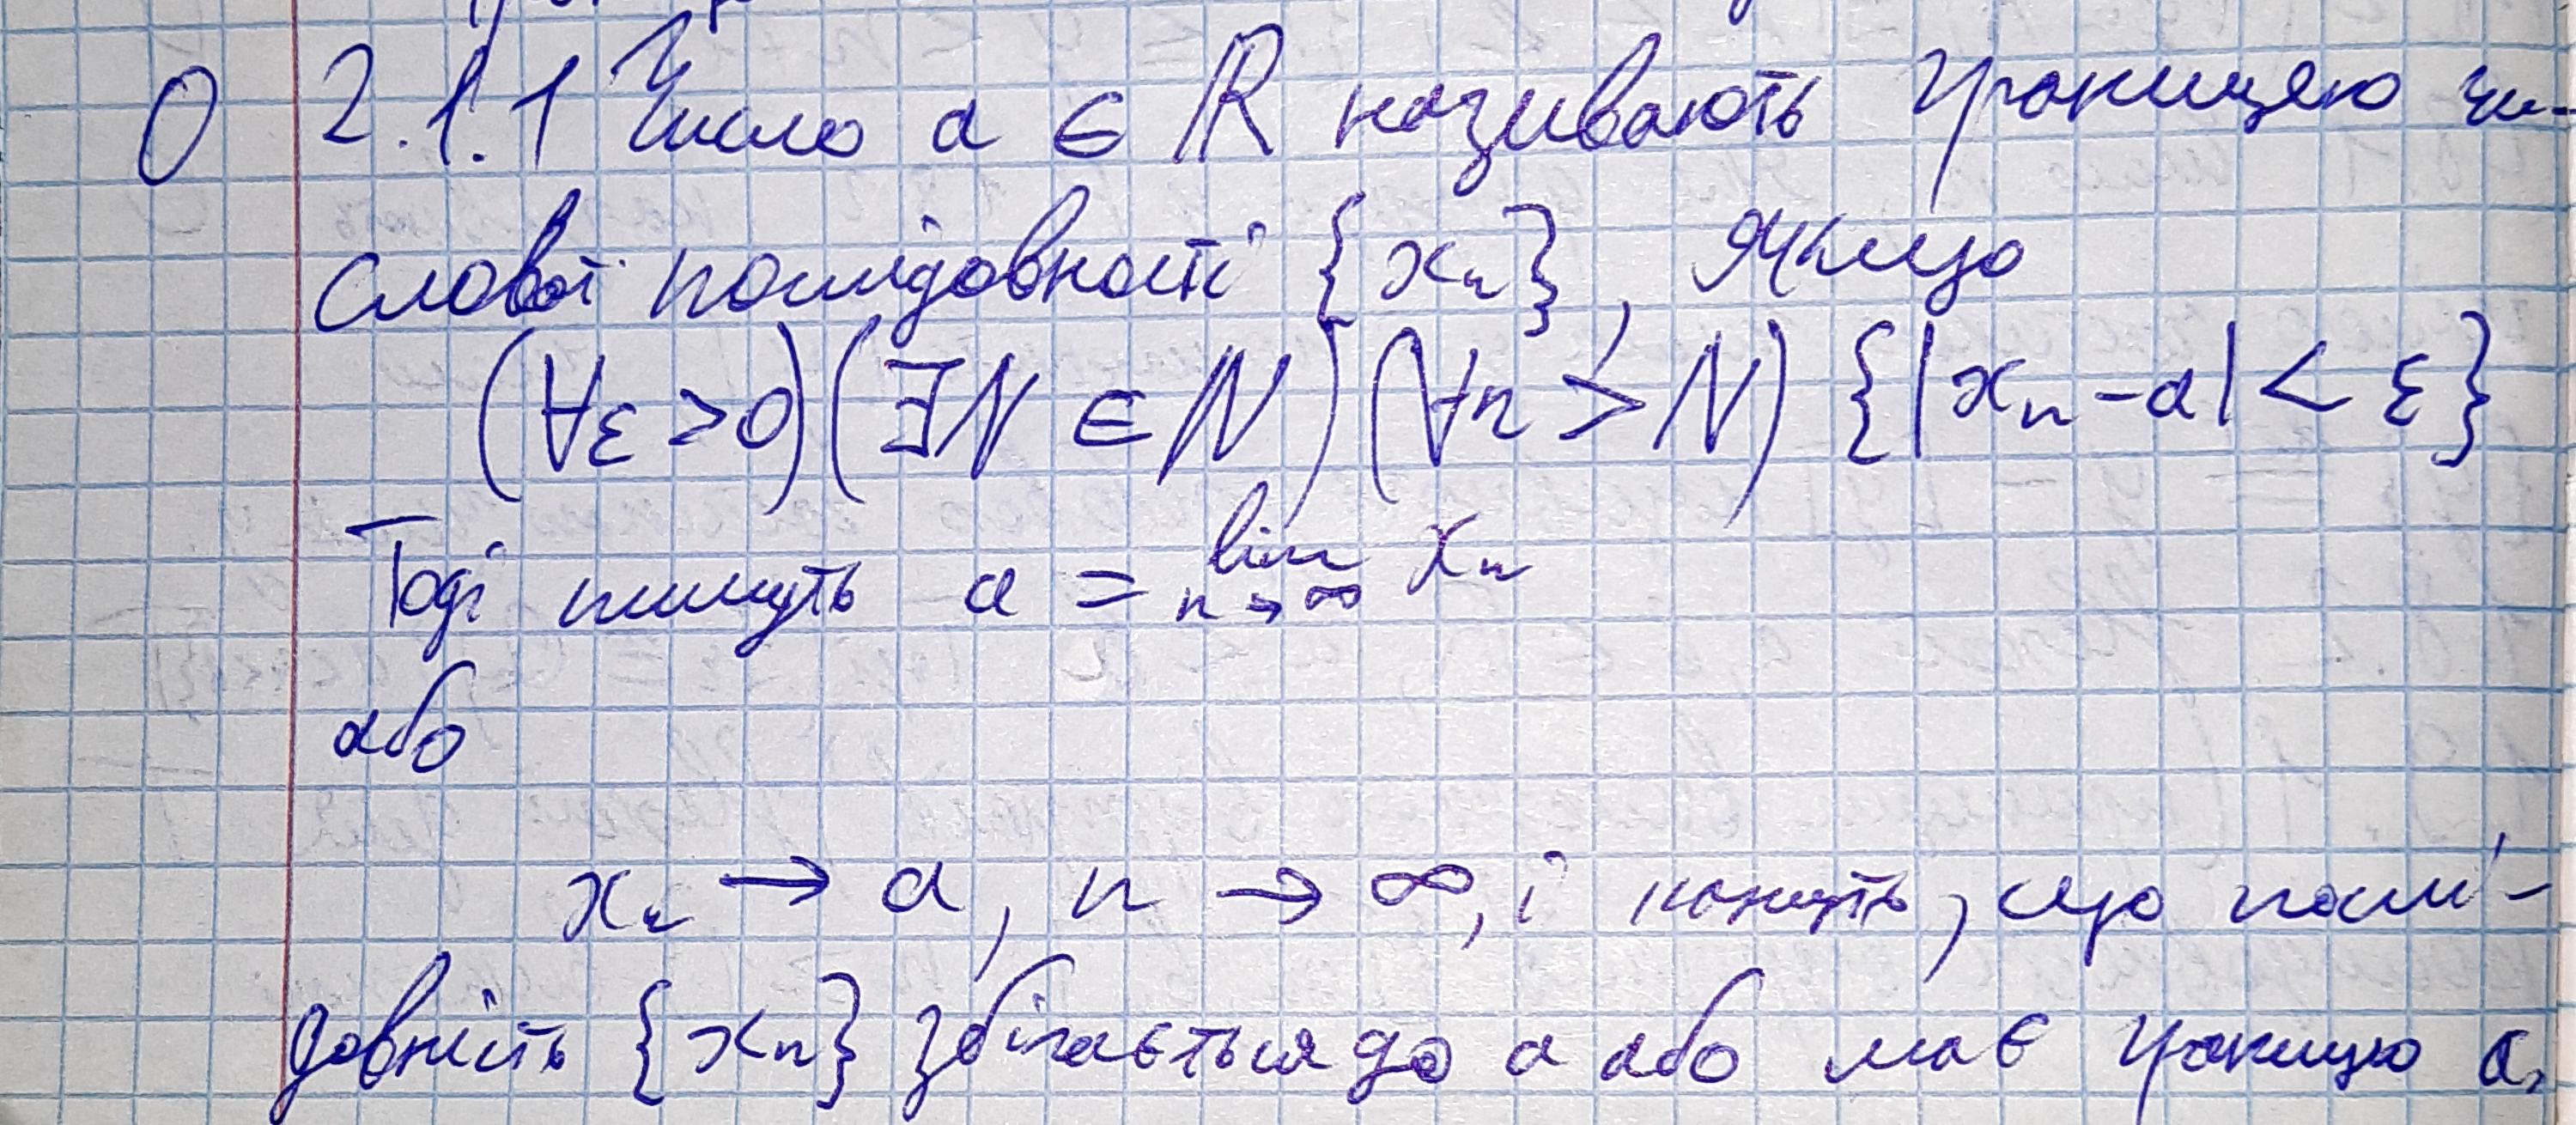 О 2.1.1 Число a ∈ ℝ називають границею чи-
слової послідовності {xₙ}, якщо
(∀ε>0)(∃N ∈ ℕ)(∀n > N) {|xₙ - a| < ε}
Тоді пишуть a = lim xₙ
n→∞
або
xₙ → a, n → ∞, і кажуть, що послі-
довність {xₙ} збігається до a або має границю a,